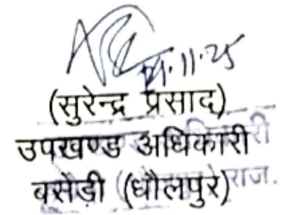 21.11.25
(सुरेन्द्र प्रसाद)
उपखण्ड अधिकारी
बसेडी (धौलपुर) राज.